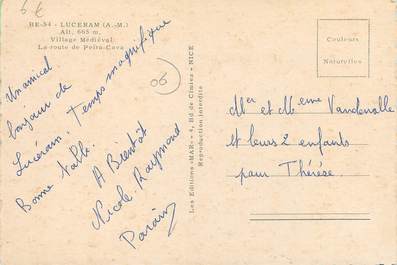 6€
BE-54 - LUCERAM (A.-M.)
Alt. 665 m.
Village Médiéval
La route de Peïra-Cava
Un amical
bonjour de
Lucéram. Temps magnifique
Bonne table.
A Bientôt
Nicole. Raymond
06
Les Editions «MAR» - 4, Bd de Cimiez - NICE
Reproduction interdite
Couleurs
Naturelles
Mer et Meme Vandenalle
et leurs 2 enfants
pour Thérèse.